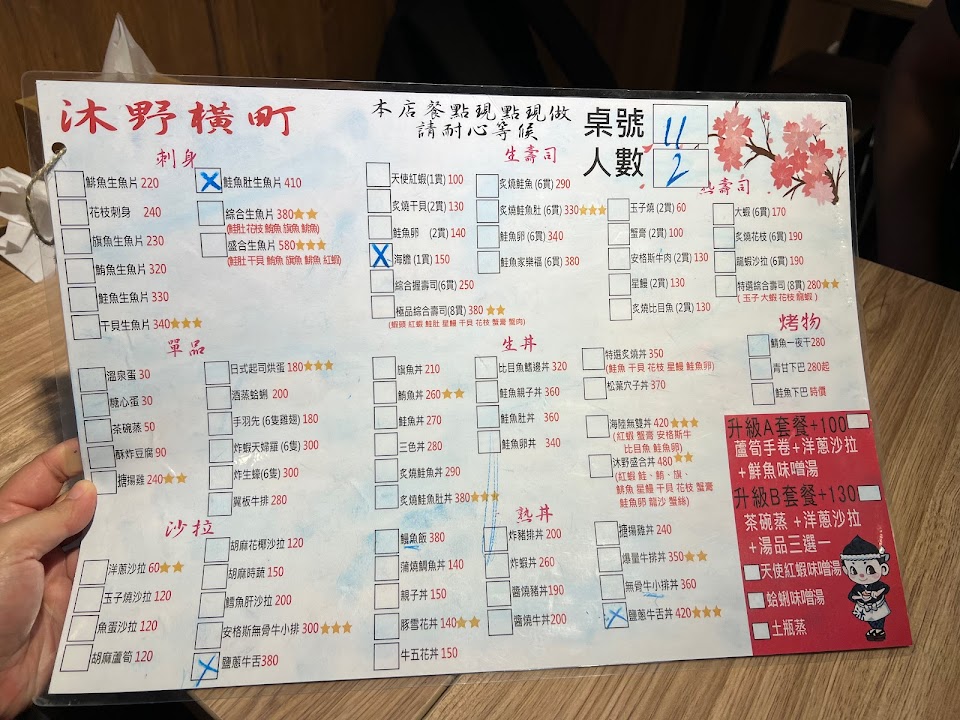 沐野橫町
本店餐點現點現做
請耐心等候
桌號 11
人數 2
刺身
鯡魚生魚片 220
花枝刺身 240
旗魚生魚片 230
鮪魚生魚片 320
鮭魚生魚片 330
干貝生魚片 340★★★
X 鮭魚肚生魚片 410
綜合生魚片 380★★
(鮭肚 花枝 鮪魚 旗魚 鯡魚)
盛合生魚片 580★★★
(鮭肚 干貝 鮪魚 旗魚 鯡魚 紅蝦)
生壽司
天使紅蝦(1貫) 100
炙燒干貝(2貫) 130
鮭魚卵 (2貫) 140
X 海膽 (1貫) 150
綜合握壽司(6貫) 250
極品綜合壽司(8貫) 380 ★★
(蝦頭 紅蝦 鮭肚 星鰻 干貝 花枝 蟹膏 蟹肉)
炙燒鮭魚 (6貫) 290
炙燒鮭魚肚 (6貫) 330★★★
鮭魚卵 (6貫) 340
鮭魚家樂福 (6貫) 380
熟壽司
玉子燒 (2貫) 60
蟹膏 (2貫) 100
安格斯牛肉 (2貫) 130
星鰻 (2貫) 130
炙燒比目魚 (2貫) 130
大蝦 (6貫) 170
炙燒花枝 (6貫) 190
龍蝦沙拉 (6貫) 190
特選綜合壽司 (8貫) 280★★
(玉子 大蝦 花枝 龍蝦)
單品
溫泉蛋 30
糖心蛋 30
茶碗蒸 50
酥炸豆腐 90
搪揚雞 240★★
日式起司烘蛋 180★★★
酒蒸蛤蜊 200
手羽先 (6隻雞翅) 180
炸蝦天婦羅 (6隻) 300
炸生蠔(6隻) 300
翼板牛排 280
生丼
旗魚丼 210
鮪魚丼 260★★
鮭魚丼 270
三色丼 280
炙燒鮭魚丼 290
炙燒鮭魚肚丼 380★★★
比目魚鰭邊丼 320
鮭魚親子丼 360
鮭魚肚丼 360
鮭魚卵丼 340
特選炙燒丼 350
(鮭魚 干貝 花枝 星鰻 鮭魚卵)
松葉穴子丼 370
海陸無雙丼 420★★★
(紅蝦 蟹膏 安格斯牛
比目魚 鮭魚卵)
沐野盛合丼 480★★
(紅蝦 鮭、鮪、旗、
鯡魚 星鰻 干貝 花枝 蟹膏
鮭魚卵 龍沙 蟹絲)
烤物
鯖魚一夜干280
青甘下巴 280起
鮭魚下巴 時價
沙拉
洋蔥沙拉 60★★
玉子燒沙拉 120
魚蛋沙拉 120
胡麻蘆筍 120
胡麻花椰沙拉 120
胡麻時蔬 150
鱈魚肝沙拉 200
安格斯無骨牛小排 300★★★
X 鹽蔥牛舌380
熟丼
鰻魚飯 380
蒲燒鯛魚丼 140
親子丼 150
豚雪花丼 140★★
牛五花丼 150
炸豬排丼 200
炸蝦丼 260
醬燒豬丼190
醬燒牛丼 200
搪揚雞丼 240
爆量牛排丼 350★★
無骨牛小排丼 360
X 鹽蔥牛舌丼 420★★★
升級A套餐+100
蘆筍手卷+洋蔥沙拉
+鮮魚味噌湯
升級B套餐+130
茶碗蒸+洋蔥沙拉
+湯品三選一
天使紅蝦味噌湯
蛤蜊味噌湯
土瓶蒸